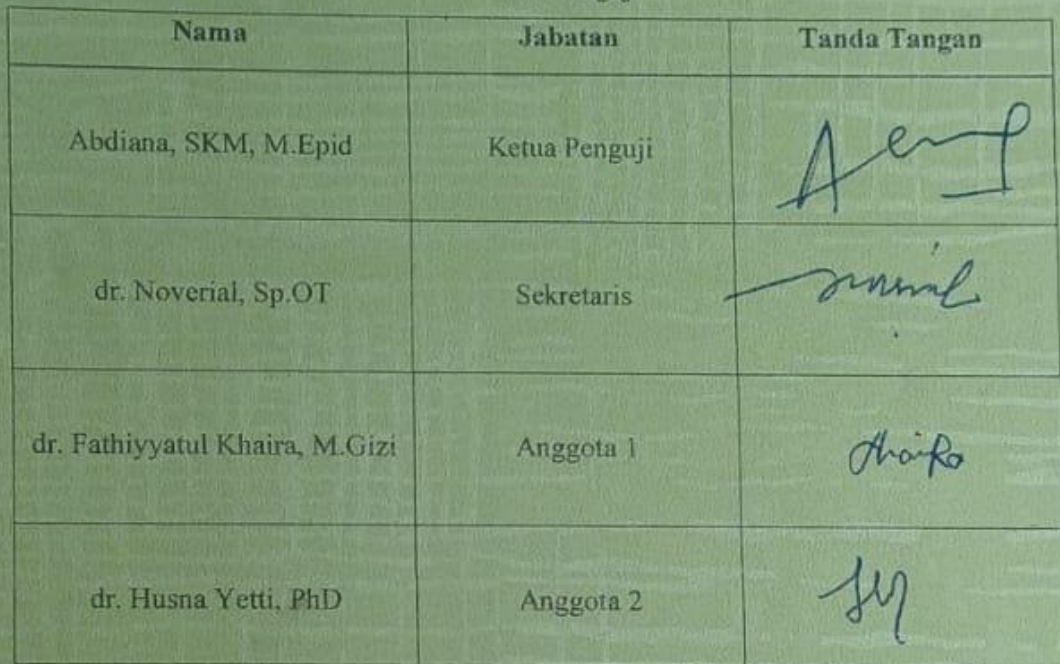 Nama Jabatan Tanda Tangan
Abdiana, SKM, M.Epid Ketua Penguji
dr. Noverial, Sp.OT Sekretaris
dr. Fathiyyatul Khaira, M.Gizi Anggota 1
dr. Husna Yetti, PhD Anggota 2